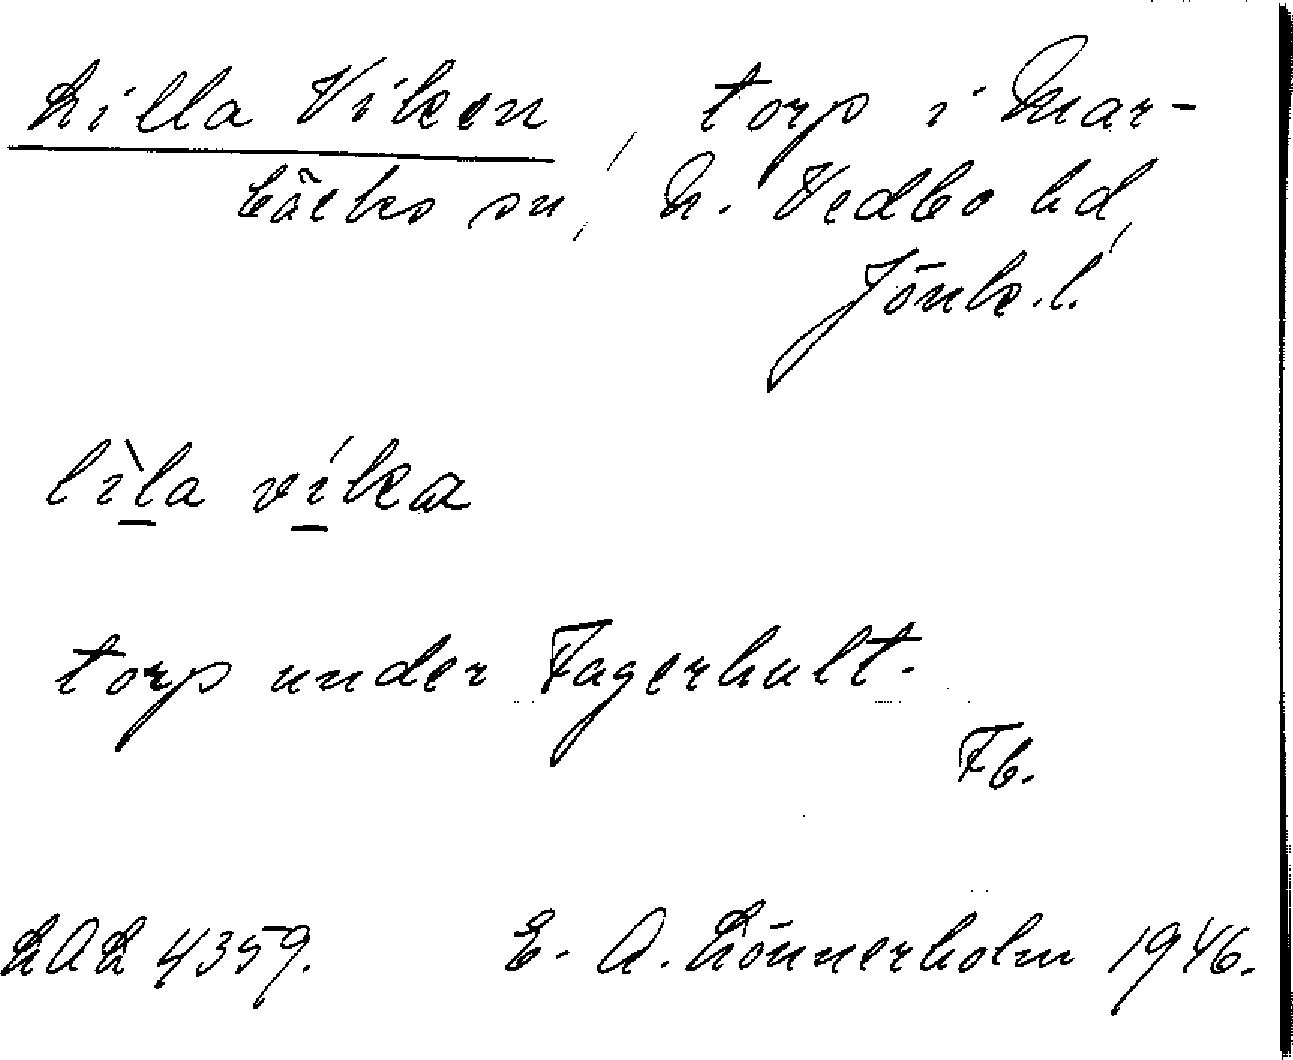 Lilla Viken, torp i Mar-
bäcks sn, N. Vedbo hd,
Jönk. l.
lìla víka
torp under Fagerhult.
Fb.
LAL 4359. E. A. Lönnerholm 1946.